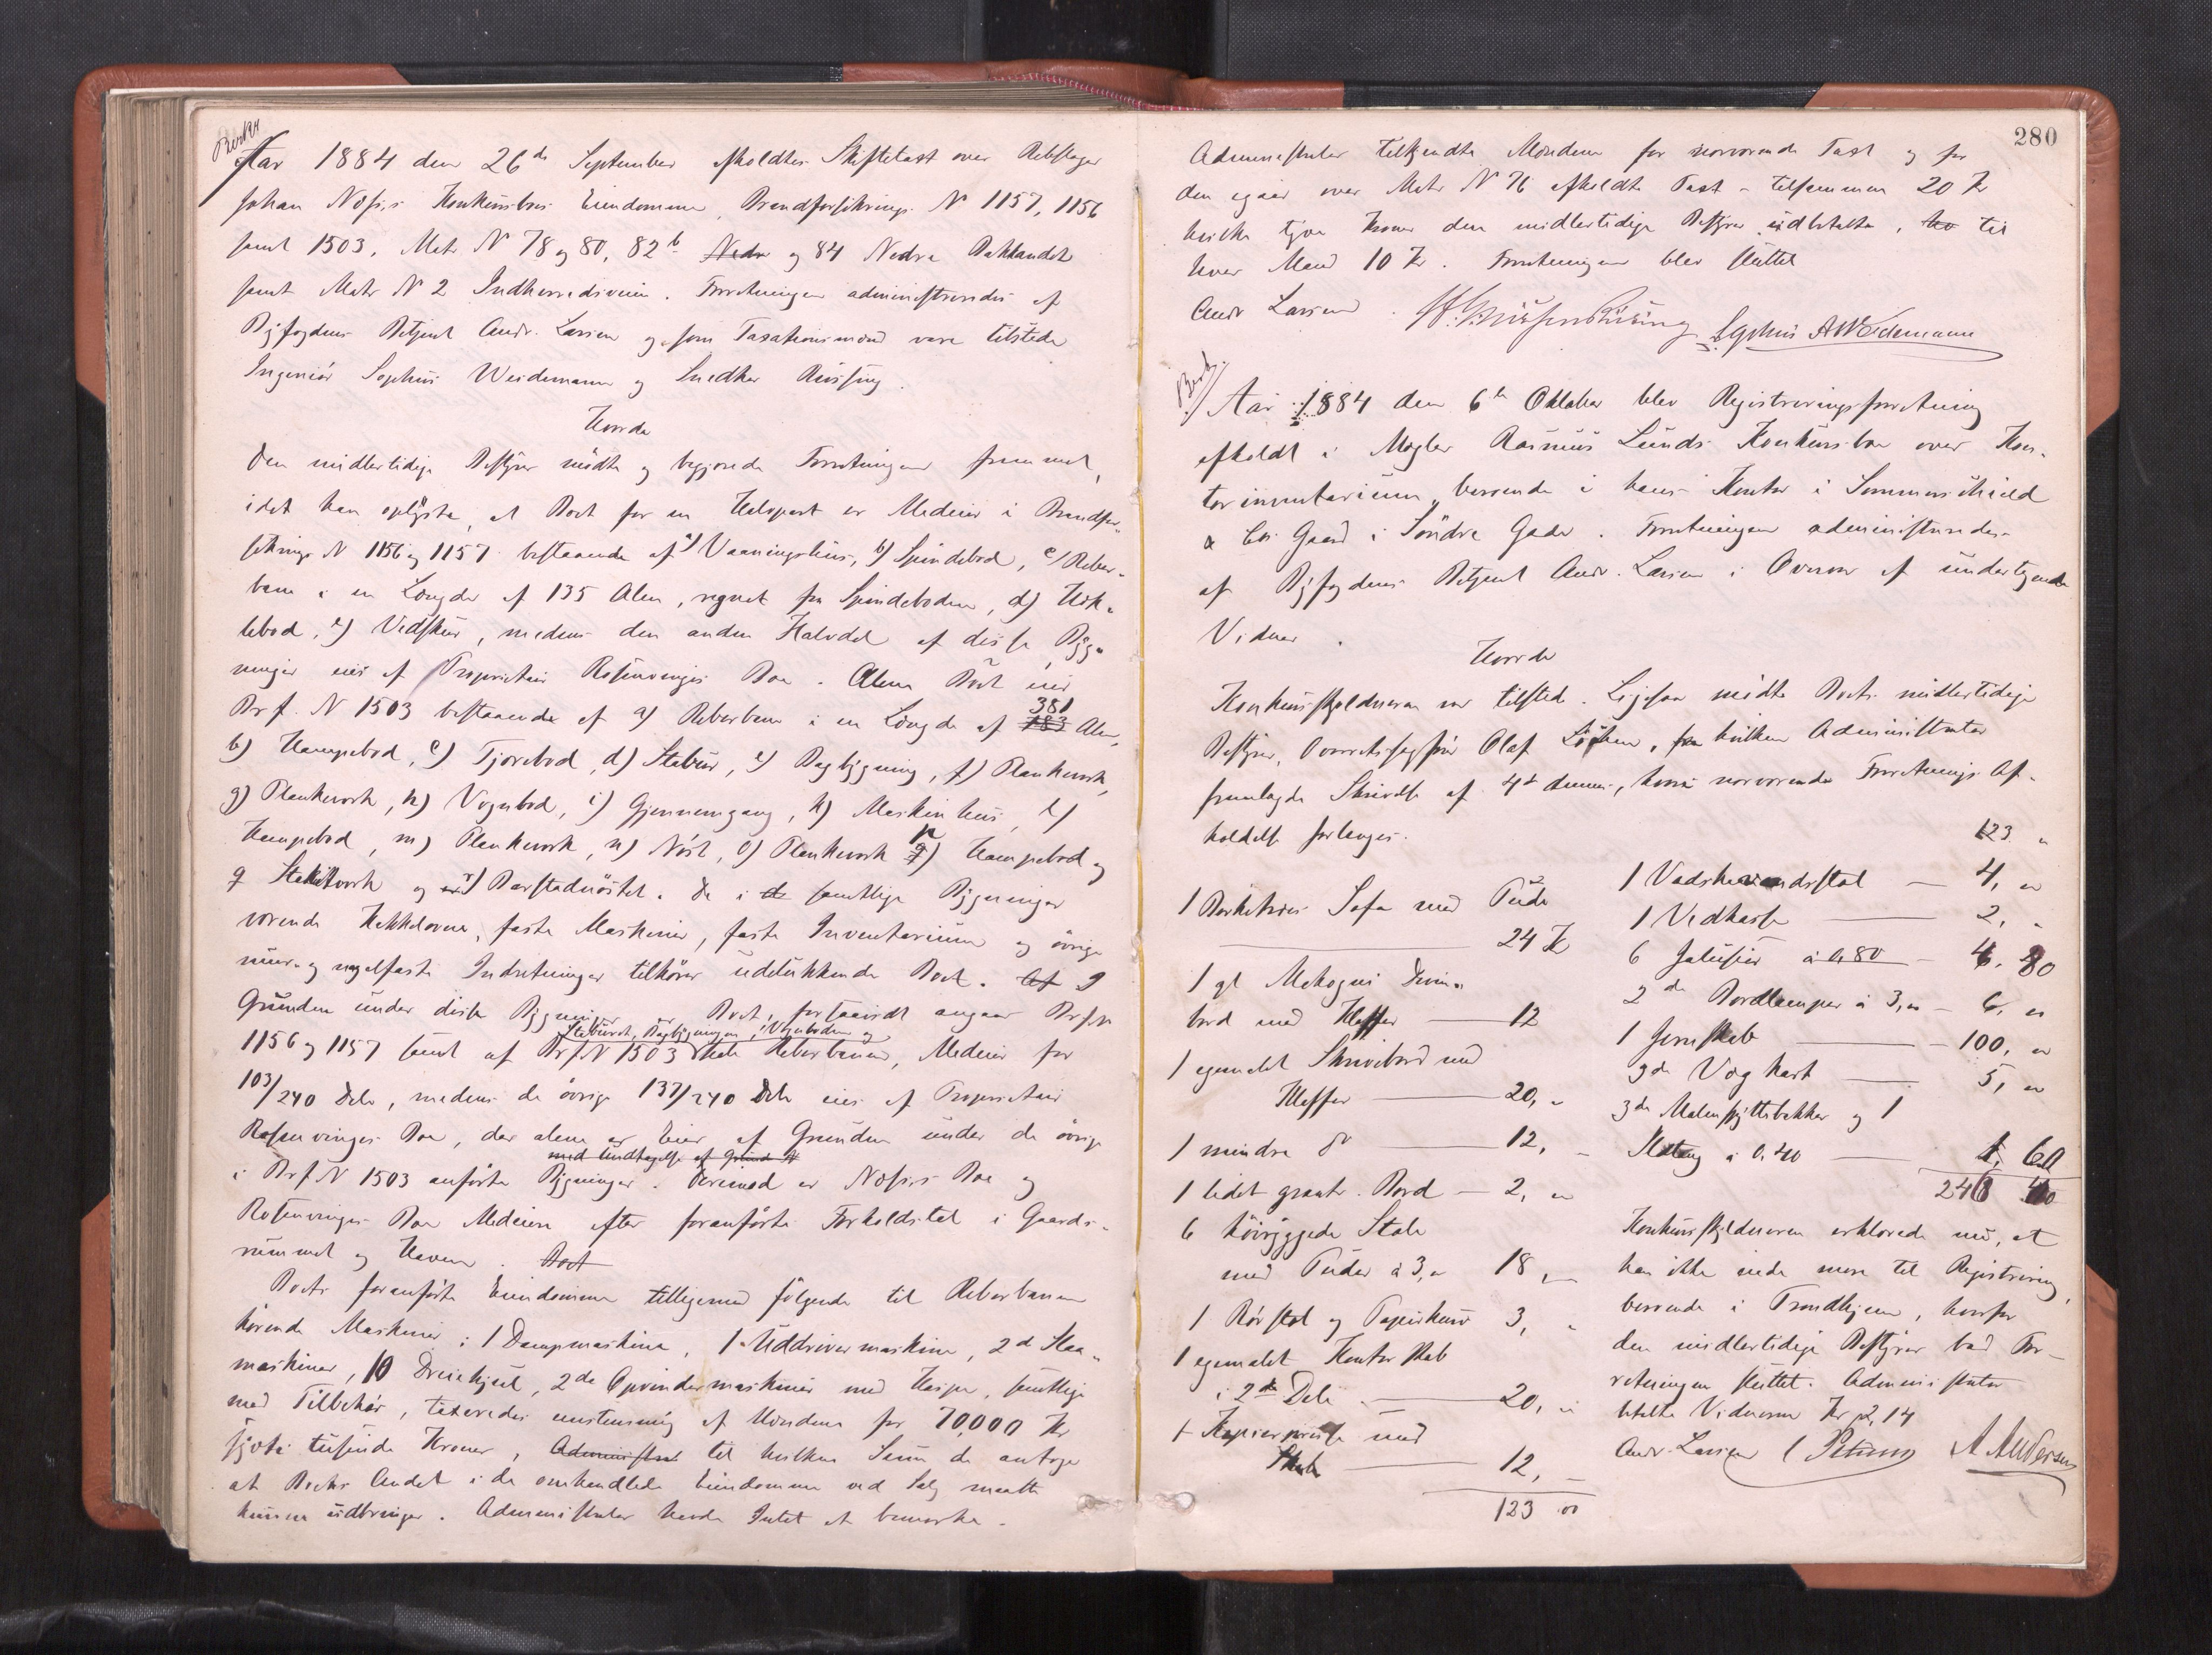 Aar 1884 den 26de September afholdtes Skiftetaxt over Rebslager
Johan Nossis Konkursbos Eiendomme, Brandforsikrings N 1157, 1156
samt 1503, Matr N 78 og 80, 82b Nedre og 84 Nedre Baklandet
samt Matr N 2 Indherredsveien. Forretningen administreredes af
Byfogdens Betjent Andr. Larsen og som Taxationsmænd vare tilstede
Ingeniör Sophus Weidemann og Snedker
Hvorda
Den midlertidige Bestyrer mödte og begjærede Forretningen fremmet,
idet han oplyste, at Boet for en Halvpart er Medeier i Brandfor-
sikrings N 1156 og 1157 bestaaende af a) Vaaningshus, b) Spindebod, c) Reber-
bane i en Længde af 135 Alen, regnet fra Spindeboden, d) Hek-
lebod, e) Vedskur, medens den anden Halvdel af disse Byg-
ninger eies af Proprietair Rosenvinges Bo. Alene Boet eier
Brf. N 1503 bestaaende af a) Reberbane i en Længde af 183 381 Alen,
b) Hampebod, c) Tjærebod, d) Stabur, e) Bagbygning, f) Plankeværk,
g) Plankeværk, h) Vognbod, i) Gjennemgang, k) Maskinhus, l)
Hampebod, m) Plankeværk, n) Nöst, o) Plankeværk p) Hampebod og
q Stakitværk og r) Baxstadnöstet. De i de samtlige Bygninger
værende Kakkelovne, faste Maskiner, faste Inventarium og övrige
muur- og nagelfaste Indretninger tilhörer udelukkende Boet. Af I
Grunden under disse Bygninger er Boet, forsaavidt angaar Brf N
Staburet, Bagbygningen, Vognboden og
1156 og 1157 samt af Brf N 1503 hele Reberbanen, Medeier for
103/240 Dele, medens de övrige 137/240 Dele eies af Proprietair
Rosenvinges Bo, der alene er Eier af Grunden under de övrige
med Undtagelse af Grund N
i Brf N 1503 anförte Bygninger. Derimod er Nossis Bo og
Rosenvinges Bo Medeiere efter foranförte Forholdstal i Gaards-
rummet og Haven. Boet
Boets foranförte Eiendomme tilligemed fölgende til Reberbanen
hörende Maskiner: 1 Dampmaskine, 1 Uddrivermaskine, 2d Slaa-
maskiner, 10 Dreiehjul, 2de Opvindermaskiner med Haspe, samtlige
med Tilbehör, taxeredes enstemmig af Mændene for 70,000 Kr
sjöti tusinde Kroner, Administrat til hvilken Sum de antoge
at Boets Andel i de omhandlede Eiendomme ved Salg maatte
kunne udbringes. Administrator havde Intet at bemærke.
280
Administrator tilkjendte Mændene for nærværende Taxt og for
den igaar over Matr N 76 afholdte Taxt - tilsammen 20 Kr
hvilke tyve Kroner den midlertidige Bestyrer udbetalte, til
hver Mand 10 Kr. Forretningen blev sluttet
Andr Larsen Sophus A Weidemann
Aar 1884 den 6te Oktober blev Registreringsforretning
afholdt i Mægler Rasmus Lunds Konkursbo over Kon-
torinventarium, beroende i hans Kontor i Sommerschield
& Cos Gaard i Söndre Gade. Forretningen administreredes
af Byfogdens Betjent Andr. Larsen i Overvær af undertegnede
Vidner.
Hvorda
Konkursskyldneren var tilstede. Ligesaa mödte Boets midlertidige
Bestyrer, Overretssagförer Olaf, fra hvilken Administrator
fremlagde Skrivelse af 4de dennes, hvori nærværende Forretnings Af-
holdelse forlanges.
1 Sofa med Pude
24 Kr
1 gl Mahogni
bord med Klaffer 12
1 egemalet Skrivebord med
Klaffer 20, "
1 mindre do 12, "
1 lidet graat. Bord 2, "
6 höiryggede Stole
med Puder à 3, " 18, "
1 Rörstol og Papirkurv 3, "
1 egemalet Kontorskab
i 2de Dele 20, "
1 Kopierpresse med
Skab 12, "
123 00
123 "
1 Vadskevandsstol 4, "
1 Vedkasse 2, "
6 Jalusier à 0,80 4, 80
2de Bordlamper à 3, " 6, "
1 Jernskab 100, "
3de Væg kart 5, "
3de og 1
à 0.40 1, 60
246 40
Konkursskyldneren erklærede nu, at
han ikke eiede mere til Registrering,
beroende i Trondhjem, hvorfor
den midlertidige Bestyrer bad For-
retningen sluttet. Administrator
betalte Vidnerne Kr 2,14
Andr. Larsen A Andersen